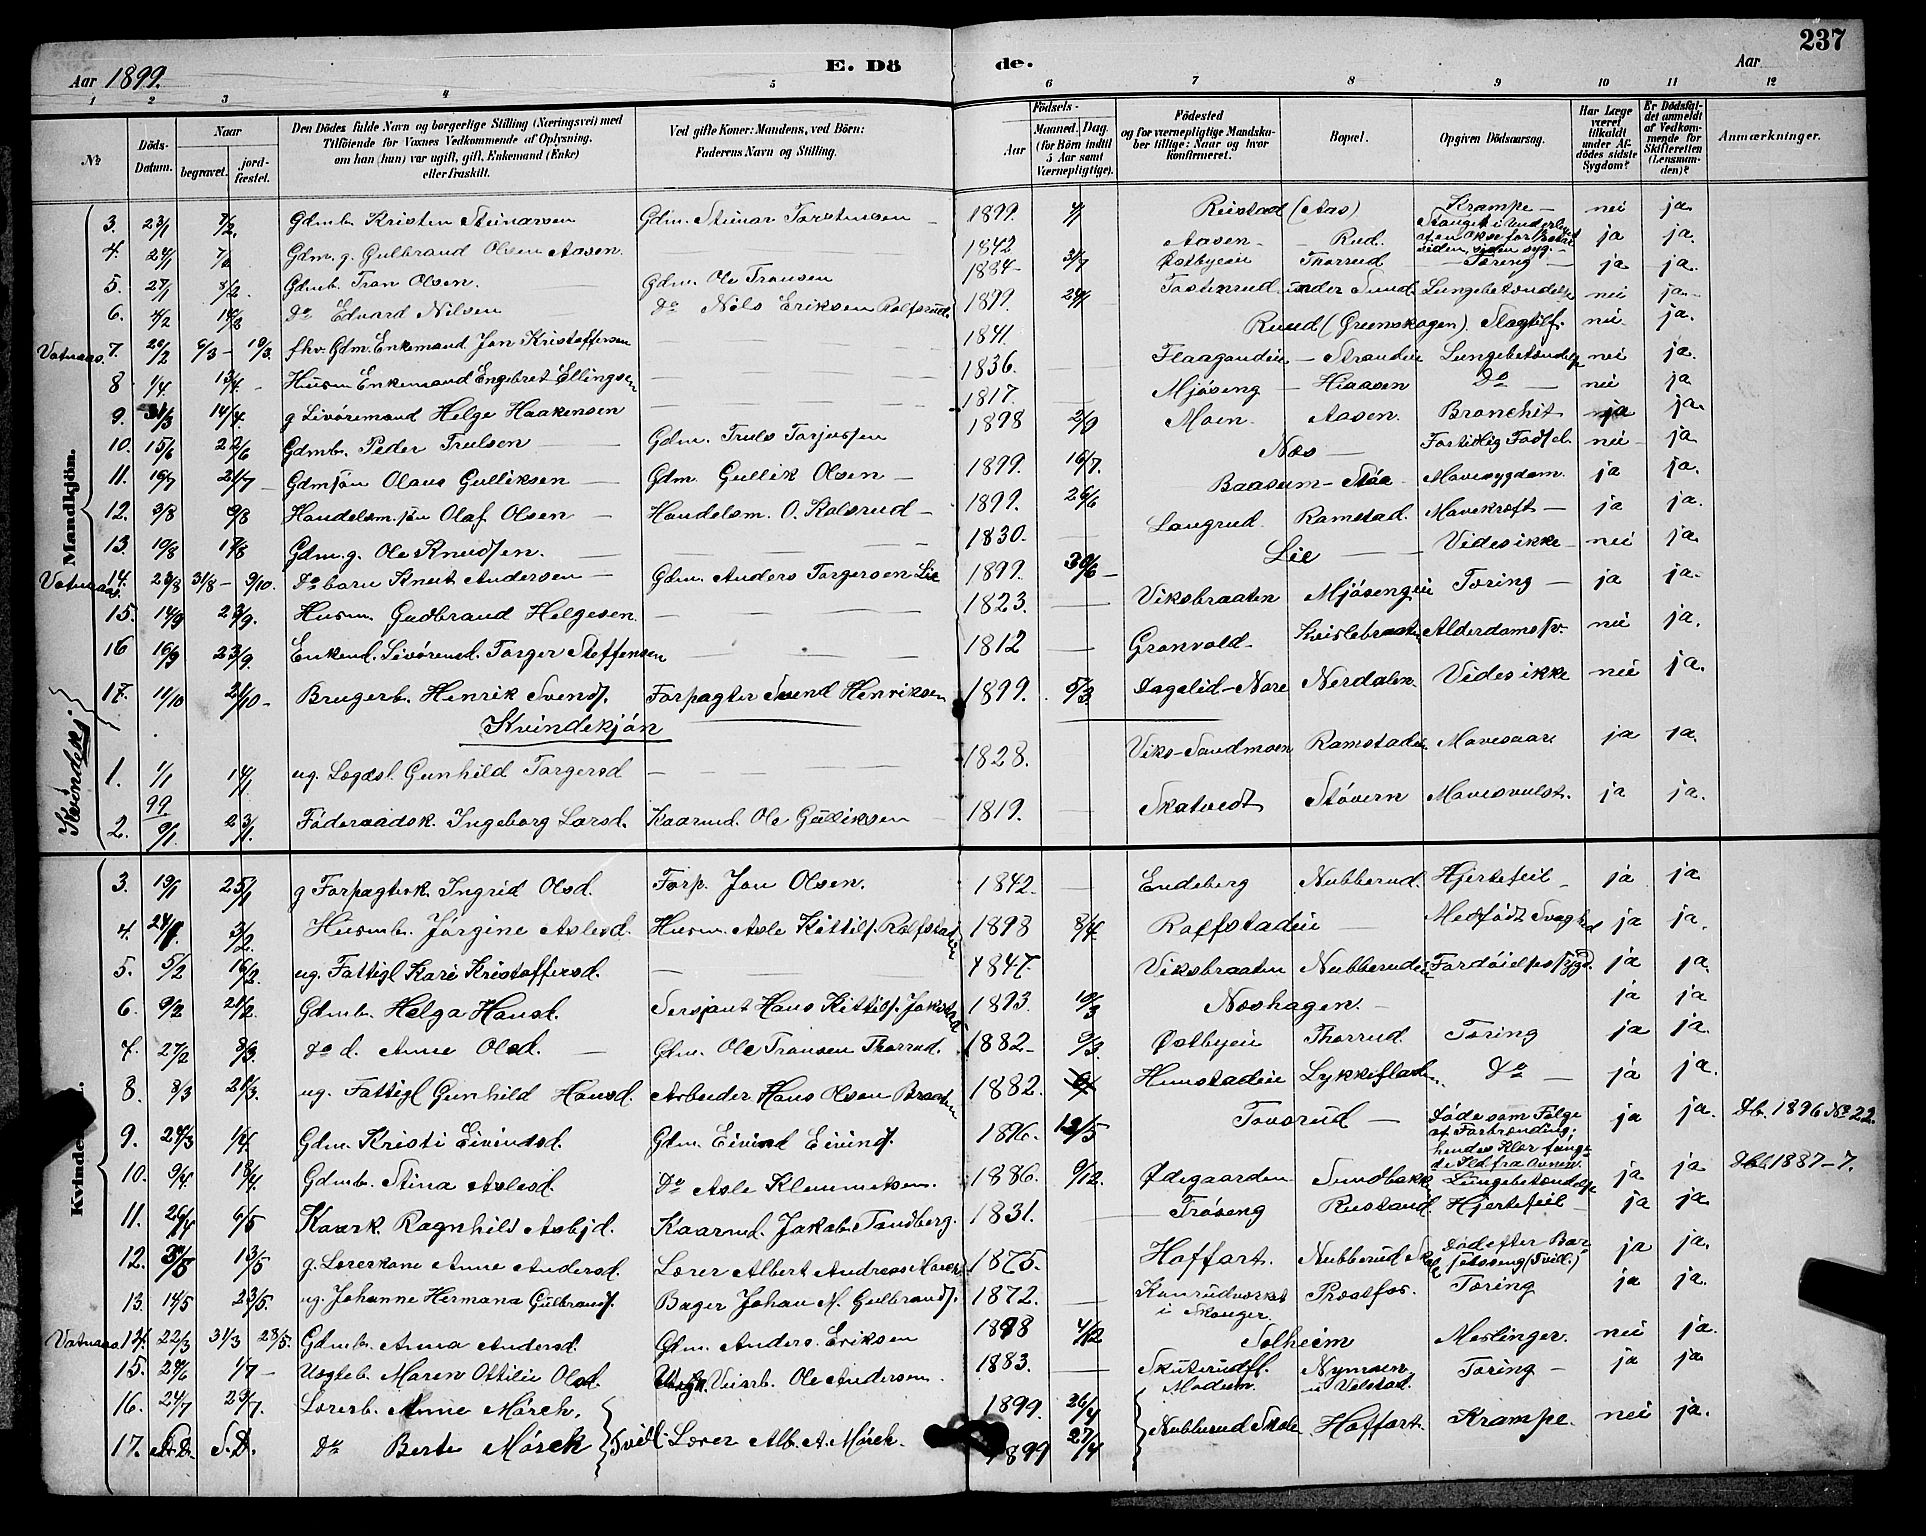 237
Aar 1899. E. Dö de. Aar
1 2 3 4 5 6 7 8 9 10 11 12
No
Döds-Datum.
Naar begravet. jordfæstet.
Den Dödes fulde Navn og borgerlige Stilling (Næringsvei) med
Tilföiende for Voxnes Vedkommende af Oplysning,
om han (hun) var ugift, gift, Enkemand (Enke)
eller fraskilt.
Ved gifte Koner: Mandens, ved Börn:
Faderens Navn og Stilling.
Födsels- Aar Maaned. Dag.
(for Börn indtil 5 Aar samt Værnepligtige).
Födested
og for værnepligtige Mandskaber tillige: Naar og hvor konfirmeret.
Bopæl.
Opgiven Dödsaarsag.
Har Læge været tilkaldt under Afdödes sidste Sygdom?
Er Dödsfaldet anmeldt af Vedkommende for Skifteretten (Lensmanden)?
Anmærkninger.
Mandkjön.
3. 23/1 7/2. Gdmb. Kristen Steinarsen Gdm. Steinar Torstensen 1899. 4/1 Rustad (Aas) Krampe nei ja.
4. 24/1 Gdm. g. Gulbrand Olsen Aasen 1842 Aasen Rud. ja ja.
5. 28/1 8/2. Gdmb. Tron Olsen. Gdm. Ole Tronsen 1884 Østbyeie Thorrud Tæring ja ja.
6. 4/2 14/2 Do Edvard Nilsen Do Nils Eriksen Rolfsrud. 1899. 24/1 under Sund. Lungebetændelse nei ja
Vatnaas 7. 20/2 6/3 19/3. fhv. Gdm. Enkemand Jon Kristoffersen 1841. Ruud (Grenskogen). Slagtilf. nei ja.
8 1/4. 13/4 Husm. Enkemand Engebret Ellingsen 1836. Flaagandeie Strandeie Lungebetændelse nei ja.
9. 31/3 14/4. g Livöremand Helge Haakensen 1817. Mjöseng Hiaasen Do nei ja
10. 15/6 22/6 Gdmb. Peder Trulsen Gdm. Truls Torjussen 1898 2/9 Moen. Aasen. Bronchit ja ja.
11. 16/7 21/7 Gdmsön Olaus Gulliksen Gdm. Gullik Olsen 1899. 16/7. Næs Fortidlig Födsel. nei ja
12. 3/8 9/8 Handelsm. sön Olaf Olsen Handelsm. O. Kolsrud 1899. 26/6 Baasum Stöa Mavesygdom. ja ja.
13. 10/8 17/8 Gdm. g. Ole Knudsen. 1830. Langrud. Ramstad. Mavekræft ja ja.
Vatnaas. 14. 23/8 31/8 9/10. Do barn Knut Andersen Gdm. Anders Torgersen Lie 1899. 30/6 Lie Vides ikke nei ja.
15. 14/9 23/9. Husm. Gudbrand Helgesen 1823. Viksbraaten Mjösengeie Tæring ja ja.
16 16/9 23/9. Enkem. Livörem. Torger Steffensen 1812 Grønvold Kvislebraaten Alderdomssv. nei ja.
17. 11/10 21/10 Brugerb. Henrik Svends. Forpagter Svend Henriksen 1899. 5/3 Dagalid-Nore Nerdalen. Vides ikke nei ja.
Kvindekjön
Kvindekj.
1. 1/1 14/1 ug. Lægdsl. Gunhild Torgersd 1828. Viks-Sandmoen Ramstadeie Mavesaar ja ja.
99
2. 9/1. 23/1. Föderaadsk. Ingeborg Larsd. Kaarmd. Ole Gulliksen 1819. Skatvedt Stövern Mavesvulst. ja ja.
Kvindekj.
3. 19/1 25/1 g Forpagterk. Ingrid Olsd. Forp. Jon Olsen. 1842. Endeberg Nubberud. Hjertefeil ja ja.
4. 24/1. 3/2. Husmb. Jörgine Aslesd. Husm. Asle Kittils. Rolfstadeie 1898 8/4. Rolfstadeie Medfödt Svaghed ja ja.
5. 5/2 16/2. ug. Fattigl Kari Kristoffersd. 1847. Viksbraaten Nubberudeie Fordöielsessygd. ja ja.
6 9/2 21/2. Gdmb. Helga Hansd. Sersjant Hans Kittils. 1893. 10/3 Næshagen. ja ja
7. 27/2 8/3. Do d. Anne Olsd. Gdm. Ole Tronsen Thorrud. 1882 9/3. Østbyeie Thorrud. Tæring ja ja.
8. 8/3 21/3. ug. Fattigl Gunhild Hansd. Arbeider Hans Olsen Braaten 1882. Himstadeie Lykkeslad Do ja ja.
9. 24/3 1/4. Gdm. Kristi Eivindsd. Gdm. Eivind Eivinds. 1896. 12/5 Tovsrud Döde som Følge af Forbrænding; hendes Klær fængede Ild fra Ovnen. ja ja. Db. 1896 No 22.
10. 9/4. 18/4. Gdmb. Stina Aslesd. Do Asle Klemmetsen. 1886. 9/12. Ødegaarden Sundbakke Lungebetændelse ja ja 1887-7.
11. 26/4 6/5 Kaark. Ragnhild Asbjd. Kaarmd. Jakob Tandberg. 1831. Tröseng Rustand. Hjertefeil ja ja.
12. 13/5 g. Lærerkone Anne Andersd. Lærer Albert Andreas Mørch 1875. Hoffart. Nubberud Död efter Barselseng (Tvill.) ja ja.
13. 14/5 23/5. ug. Johanne Hermana Gulbrands. Bager Johan M. Gulbrands. 1872. i Skouger Tæring ja ja.
Vatnaas 14. 22/3 31/3 28/5. Gdmb. Anna Andersd. Gdm. Anders Eriksen 1898 4/12 Solheim Meslinger. nei ja.
15. 24/6 1/7 Maren Ottilie Olsd. Veiarb. Ole Andersen. 1883. Modum. Nymoen u Velstad. Tæring ja ja.
16. 24/7 29/7. Lærerb. Anne Mörch, 1899. 26/4 Nubberud Skole Hoffart. Krampe. nei ja.
17. S.D. S.D. Do Berte Mörck Tvill. Lærer Alb. A. Mörch. 1899 27/4